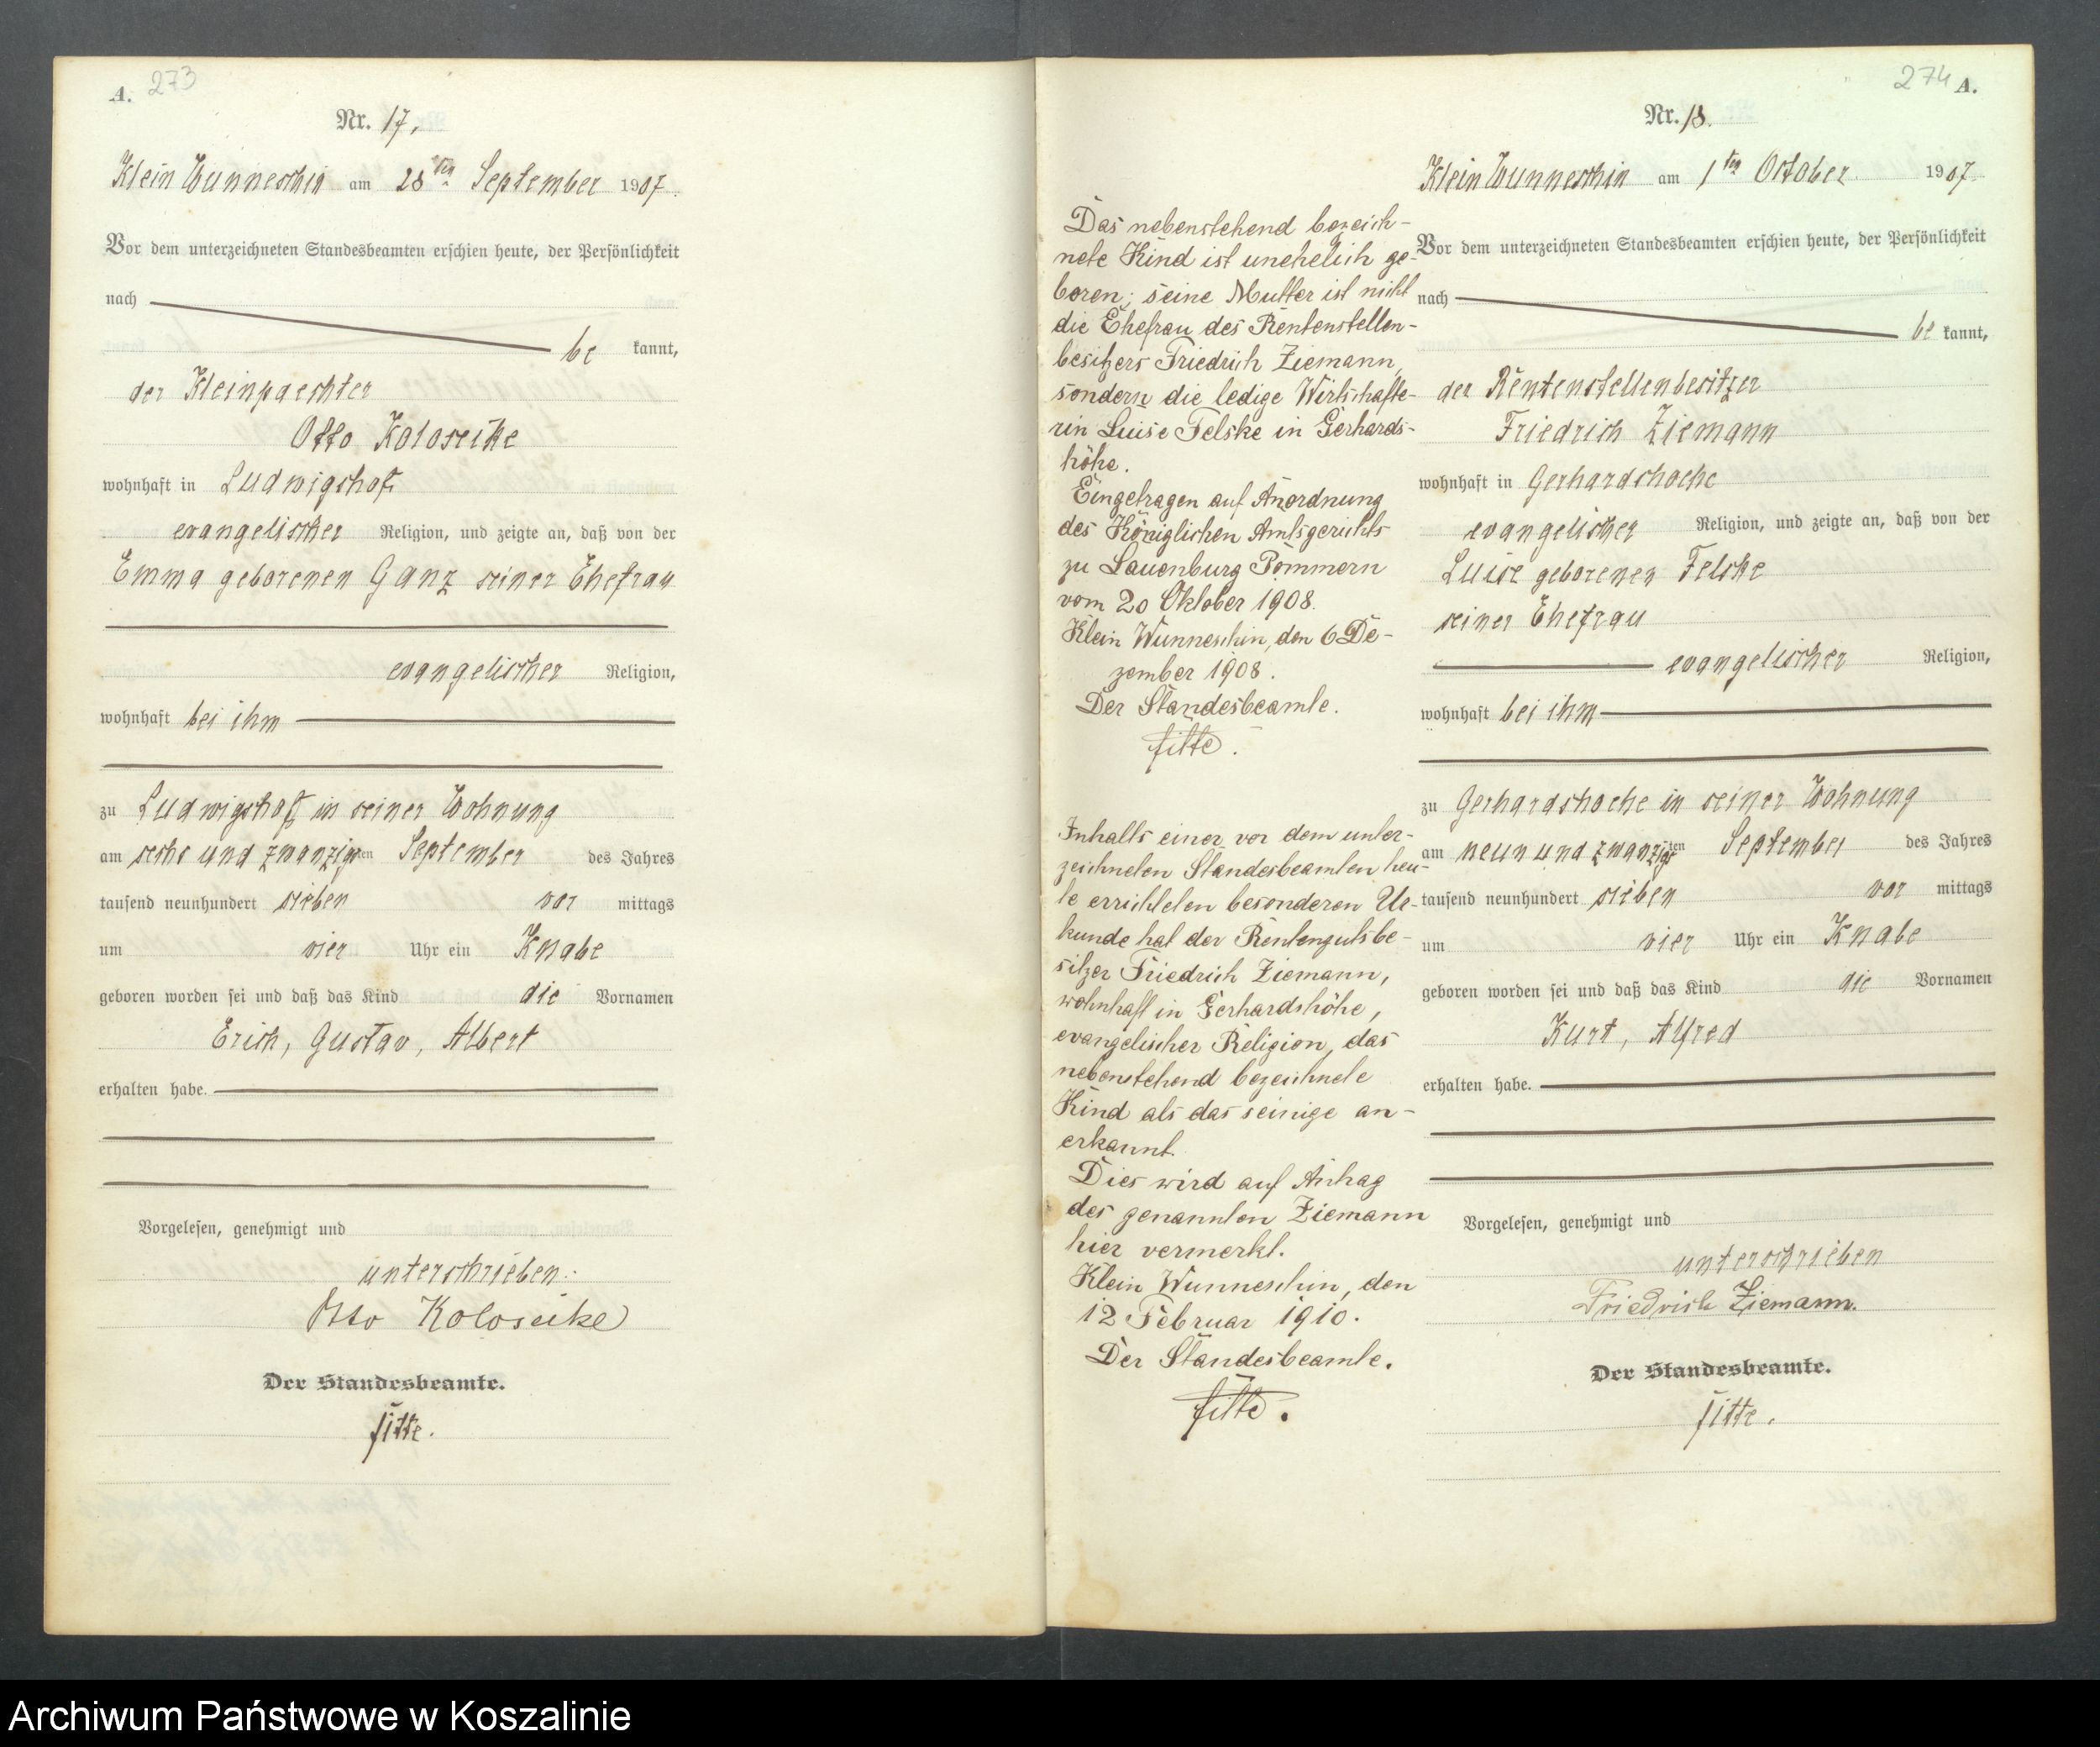 A. 273
Nr. 17.
Klein Wunneschin am 28ten September 1907.
Vor dem unterzeichneten Standesbeamten erschien heute, der Persönlichkeit
nach
be kannt,
der Kleinpaechter
Otto Koloseike
wohnhaft in Ludwigshof,
evangelischer Religion, und zeigte an, daß von der
Emma geborenen Ganz seiner Ehefrau
evangelischer Religion,
wohnhaft bei ihm
zu Ludwigshof, in seiner Wohnung
am sechs und zwanzigsten September des Jahres
tausend neunhundert sieben vor mittags
um vier Uhr ein Knabe
geboren worden sei und daß das Kind die Vornamen
Erich, Gustav, Albert
erhalten habe.
Vorgelesen, genehmigt und
unterschrieben.
Otto Koloseike
Der Standesbeamte.
Fitte.
Das nebenstehend bezeich-
nete Kind ist unehelich ge-
boren; seine Mutter ist nicht
die Ehefrau des Rentenstellen-
besitzers Friedrich Ziemann,
sondern die ledige Wirtschafte-
rin Luise Felske in Gerhards-
höhe.
Eingetragen auf Anordnung
des Königlichen Amtsgerichts
zu Lauenburg Pommern
vom 20 Oktober 1908.
Klein Wunneschin, den 6 De-
zember 1908.
Der Standesbeamte.
Fitte.
Inhalts einer vor dem unter-
zeichneten Standesbeamten heu-
te errichteten besonderen Ur-
kunde hat der Rentengutsbe-
sitzer Friedrich Ziemann,
wohnhaft in Gerhardshöhe,
evangelischer Religion, das
nebenstehend bezeichnete
Kind als das seinige an-
erkannt.
Dies wird auf Antrag
des genannten Ziemann
hier vermerkt.
Klein Wunneschin, den
12 Februar 1910.
Der Standesbeamte.
Fitte.
274 A.
Nr. 18.
Klein Wunneschin am 1ten October 1907.
Vor dem unterzeichneten Standesbeamten erschien heute, der Persönlichkeit
nach
be kannt,
der Rentenstellenbesitzer
Friedrich Ziemann
wohnhaft in Gerhardshoehe
evangelischer Religion, und zeigte an, daß von der
Luise geborenen Felske
seiner Ehefrau
evangelischer Religion,
wohnhaft bei ihm
zu Gerhardshoehe in seiner Wohnung
am neun und zwanzigsten September des Jahres
tausend neunhundert sieben vor mittags
um vier Uhr ein Knabe
geboren worden sei und daß das Kind die Vornamen
Kurt, Alfred
erhalten habe.
Vorgelesen, genehmigt und
unterschrieben
Friedrich Ziemann.
Der Standesbeamte.
Fitte.
Archiwum Państwowe w Koszalinie